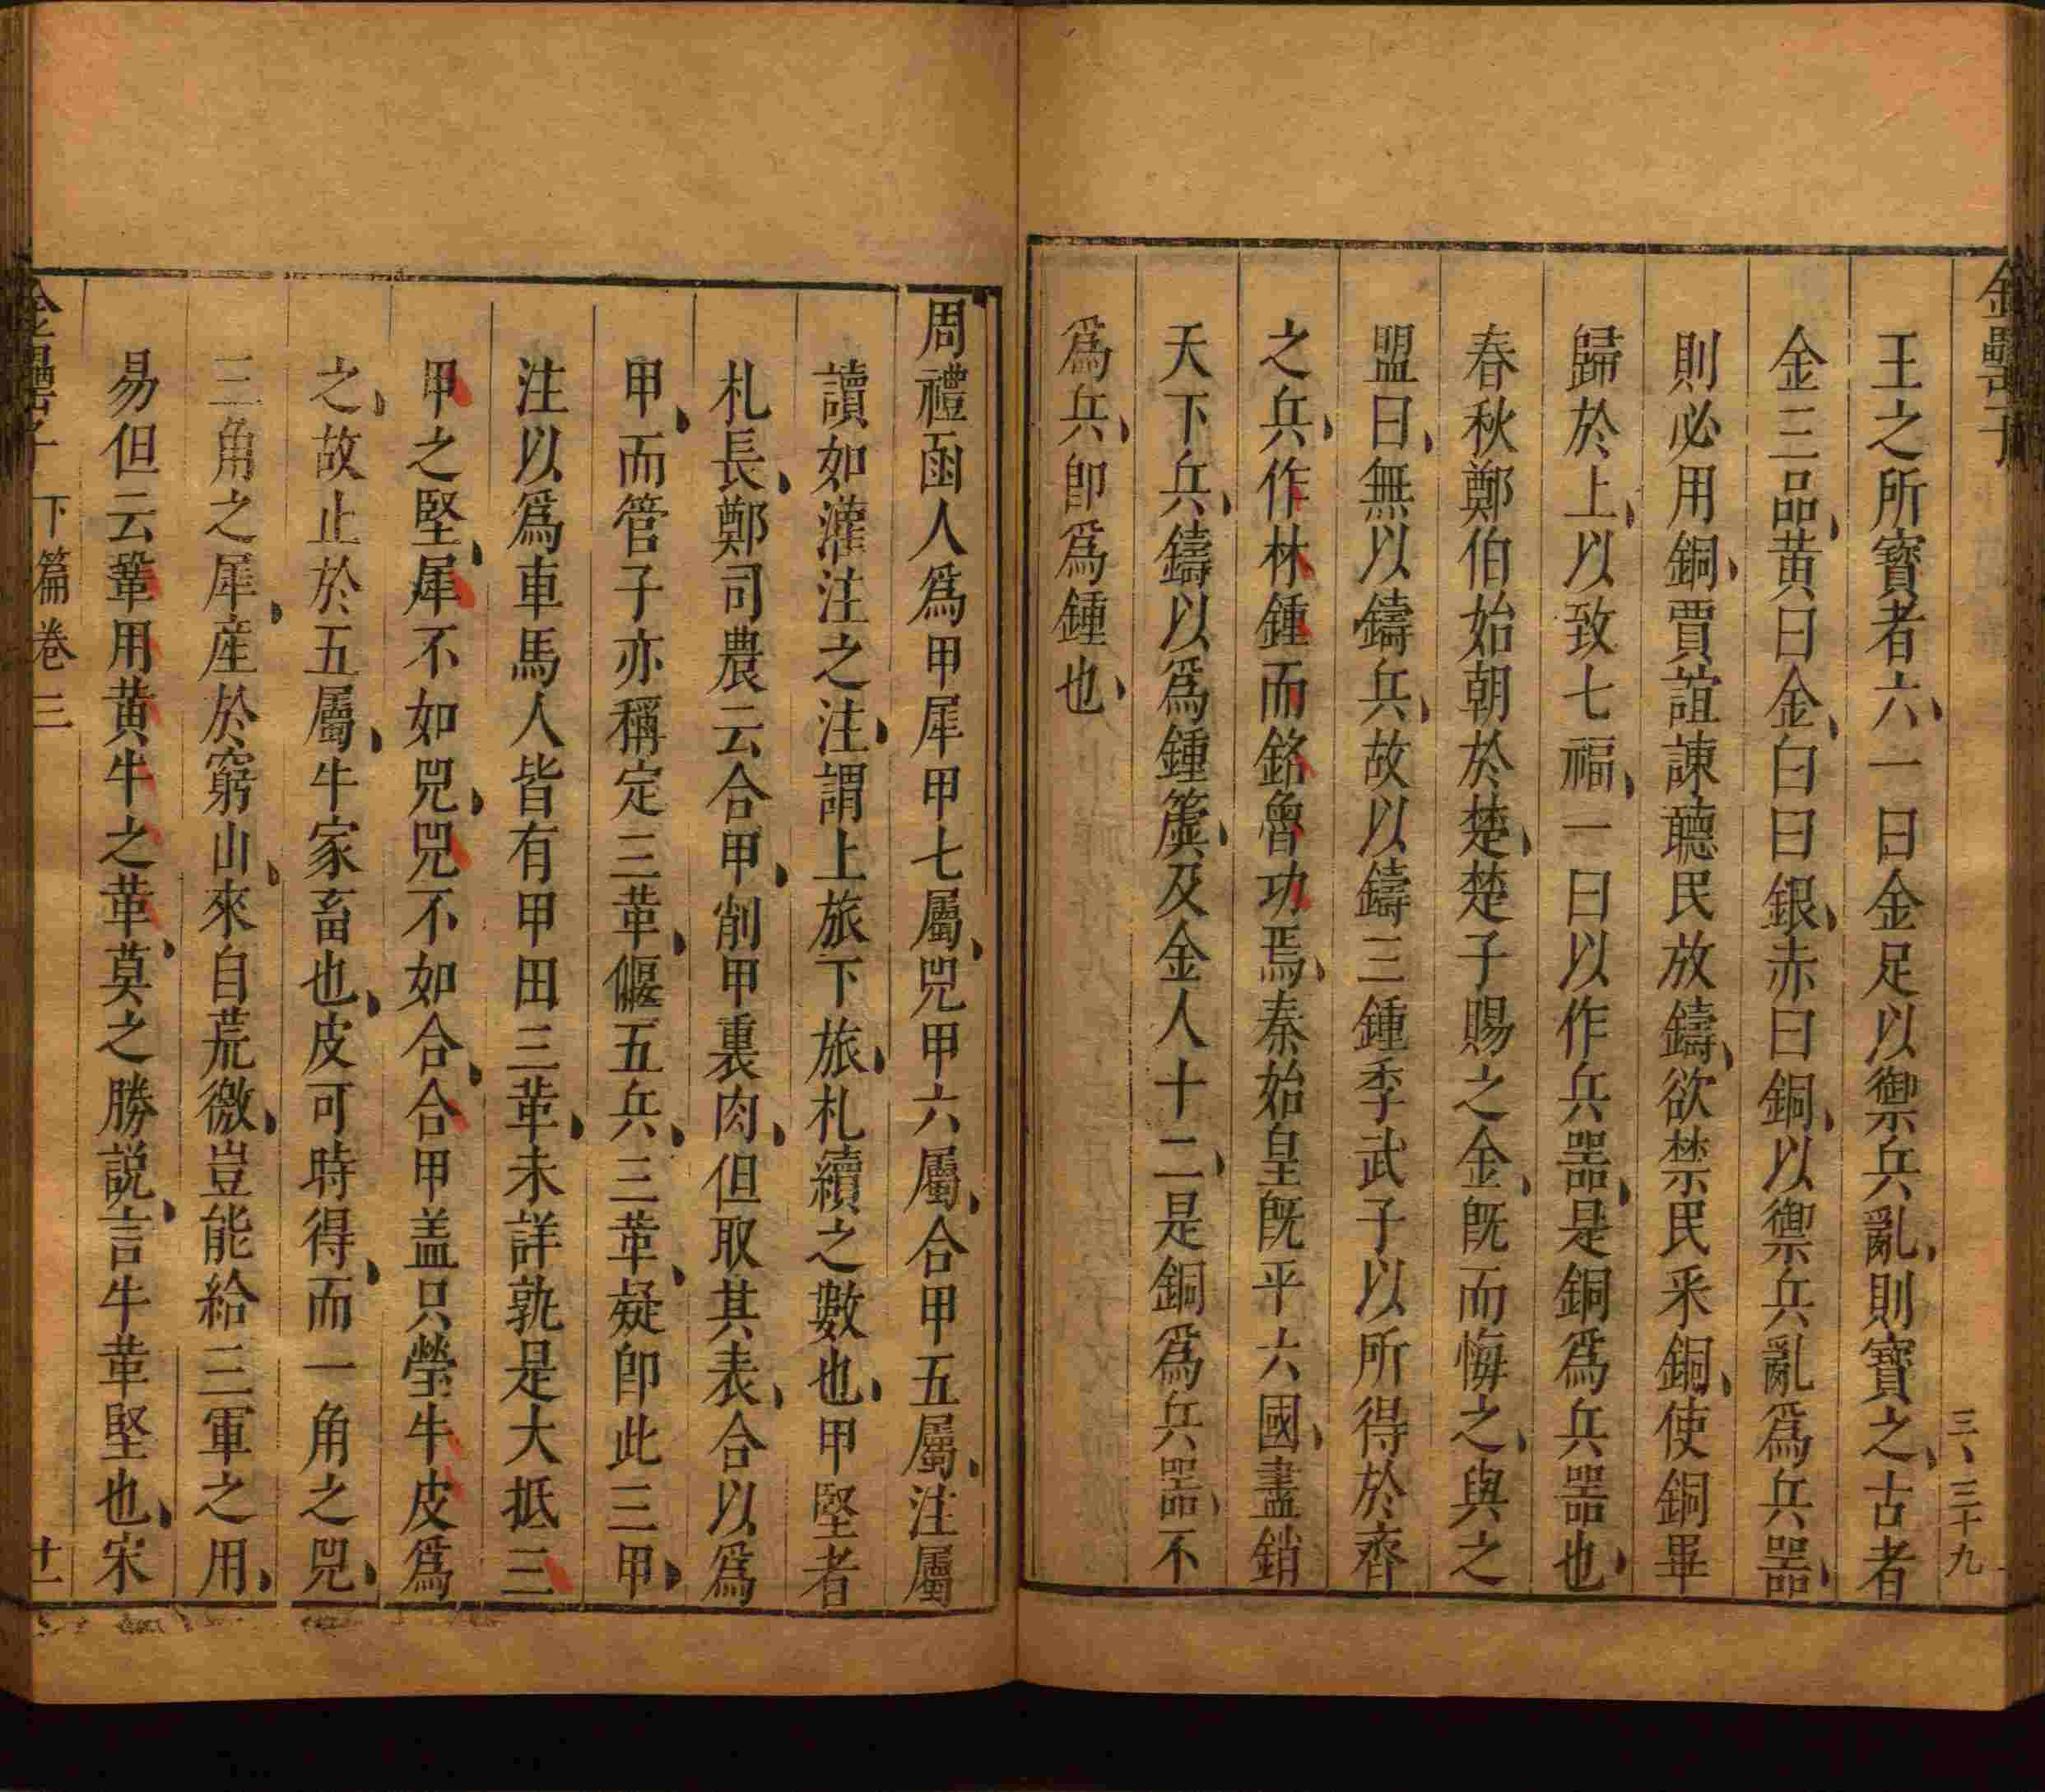 金罍子
三、三十九
王之所寳者六、一曰金足以禦兵亂、則寳之、古者
金三品、黄曰金、白曰銀、赤曰銅、以禦兵亂爲兵器、
則必用銅、賈誼諫聽民放鑄、欲禁民采銅、使銅畢
歸於上、以致七福、一曰以作兵器、是銅爲兵器也、
春秋鄭伯始朝於楚、楚子賜之金、既而悔之、與之
盟曰、無以鑄兵、故以鑄三鍾季武子以所得於齊
之兵、作林鍾而銘魯功焉、秦始皇既平六國、盡銷
天下兵、鑄以爲鍾簴、及金人十二、是銅爲兵器、不
爲兵、卽爲鍾也、
周禮函人爲甲犀甲七屬、兕甲六屬、合甲五屬、注屬
讀如灌注之注、謂上旅下旅、札續之數也、甲堅者
札長、鄭司農云合甲、削甲裏肉、但取其表、合以爲
甲、而管子亦稱定三革、偃五兵、三革、疑卽此三甲、
注以爲車馬人皆有甲田三革、未詳孰是大抵三
甲之堅、犀不如兕、兕不如合、合甲盖只瑩牛皮爲
之、故止於五屬、牛家畜也、皮可時得、而一角之兕、
三角之犀、産於窮山、來自荒徼、豈能給三軍之用、
易但云鞏用黄牛之革、莫之勝説、言牛革堅也、宋
金罍子 下篇卷三 十一